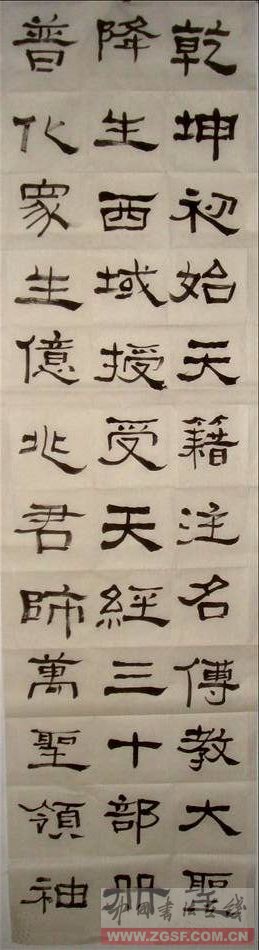 乾坤初始天籍注名傳教大聖
降生西域授受天經三十部冊
普化衆生億兆君師萬聖領袖
中国书法在线
WWW.ZGSF.COM.CN